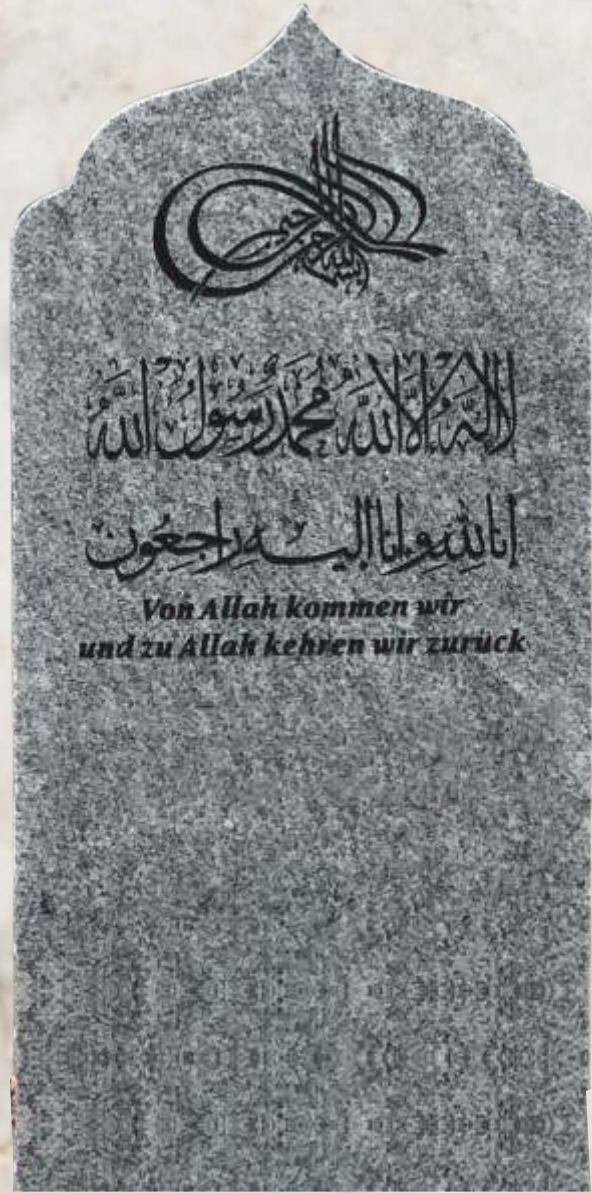 بسم الله الرحمن الرحيم
لا إله إلا الله محمد رسول الله
انا لله وانا اليه راجعون
Von Allah kommen wir
und zu Allah kehren wir zurück